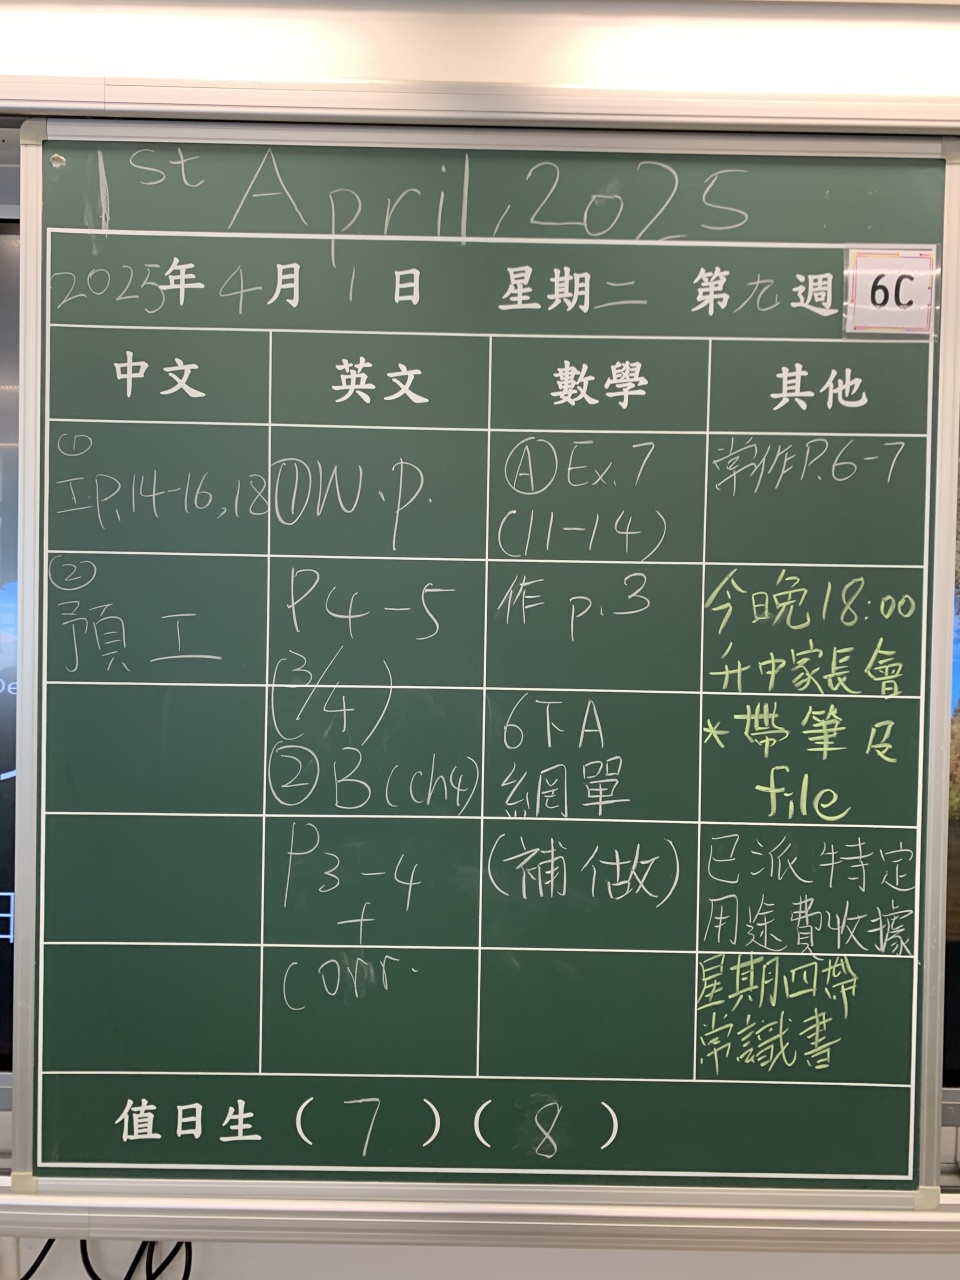 1st April, 2025
2025年4月1日 星期二 第九週 6C
中文 英文 數學 其他
①
工P.14-16,18
②
預工
①N.p.
P4-5
(3/4)
②B(ch4)
P3-4
+
corr.
Ⓐ Ex.7
(11-14)
作 p.3
6下A
網單
(補做)
常作P.6-7
今晚18:00
升中家長會
*帶筆及
file
已派特定
用途費收據
星期四帶
常識書
值日生(7)(8)